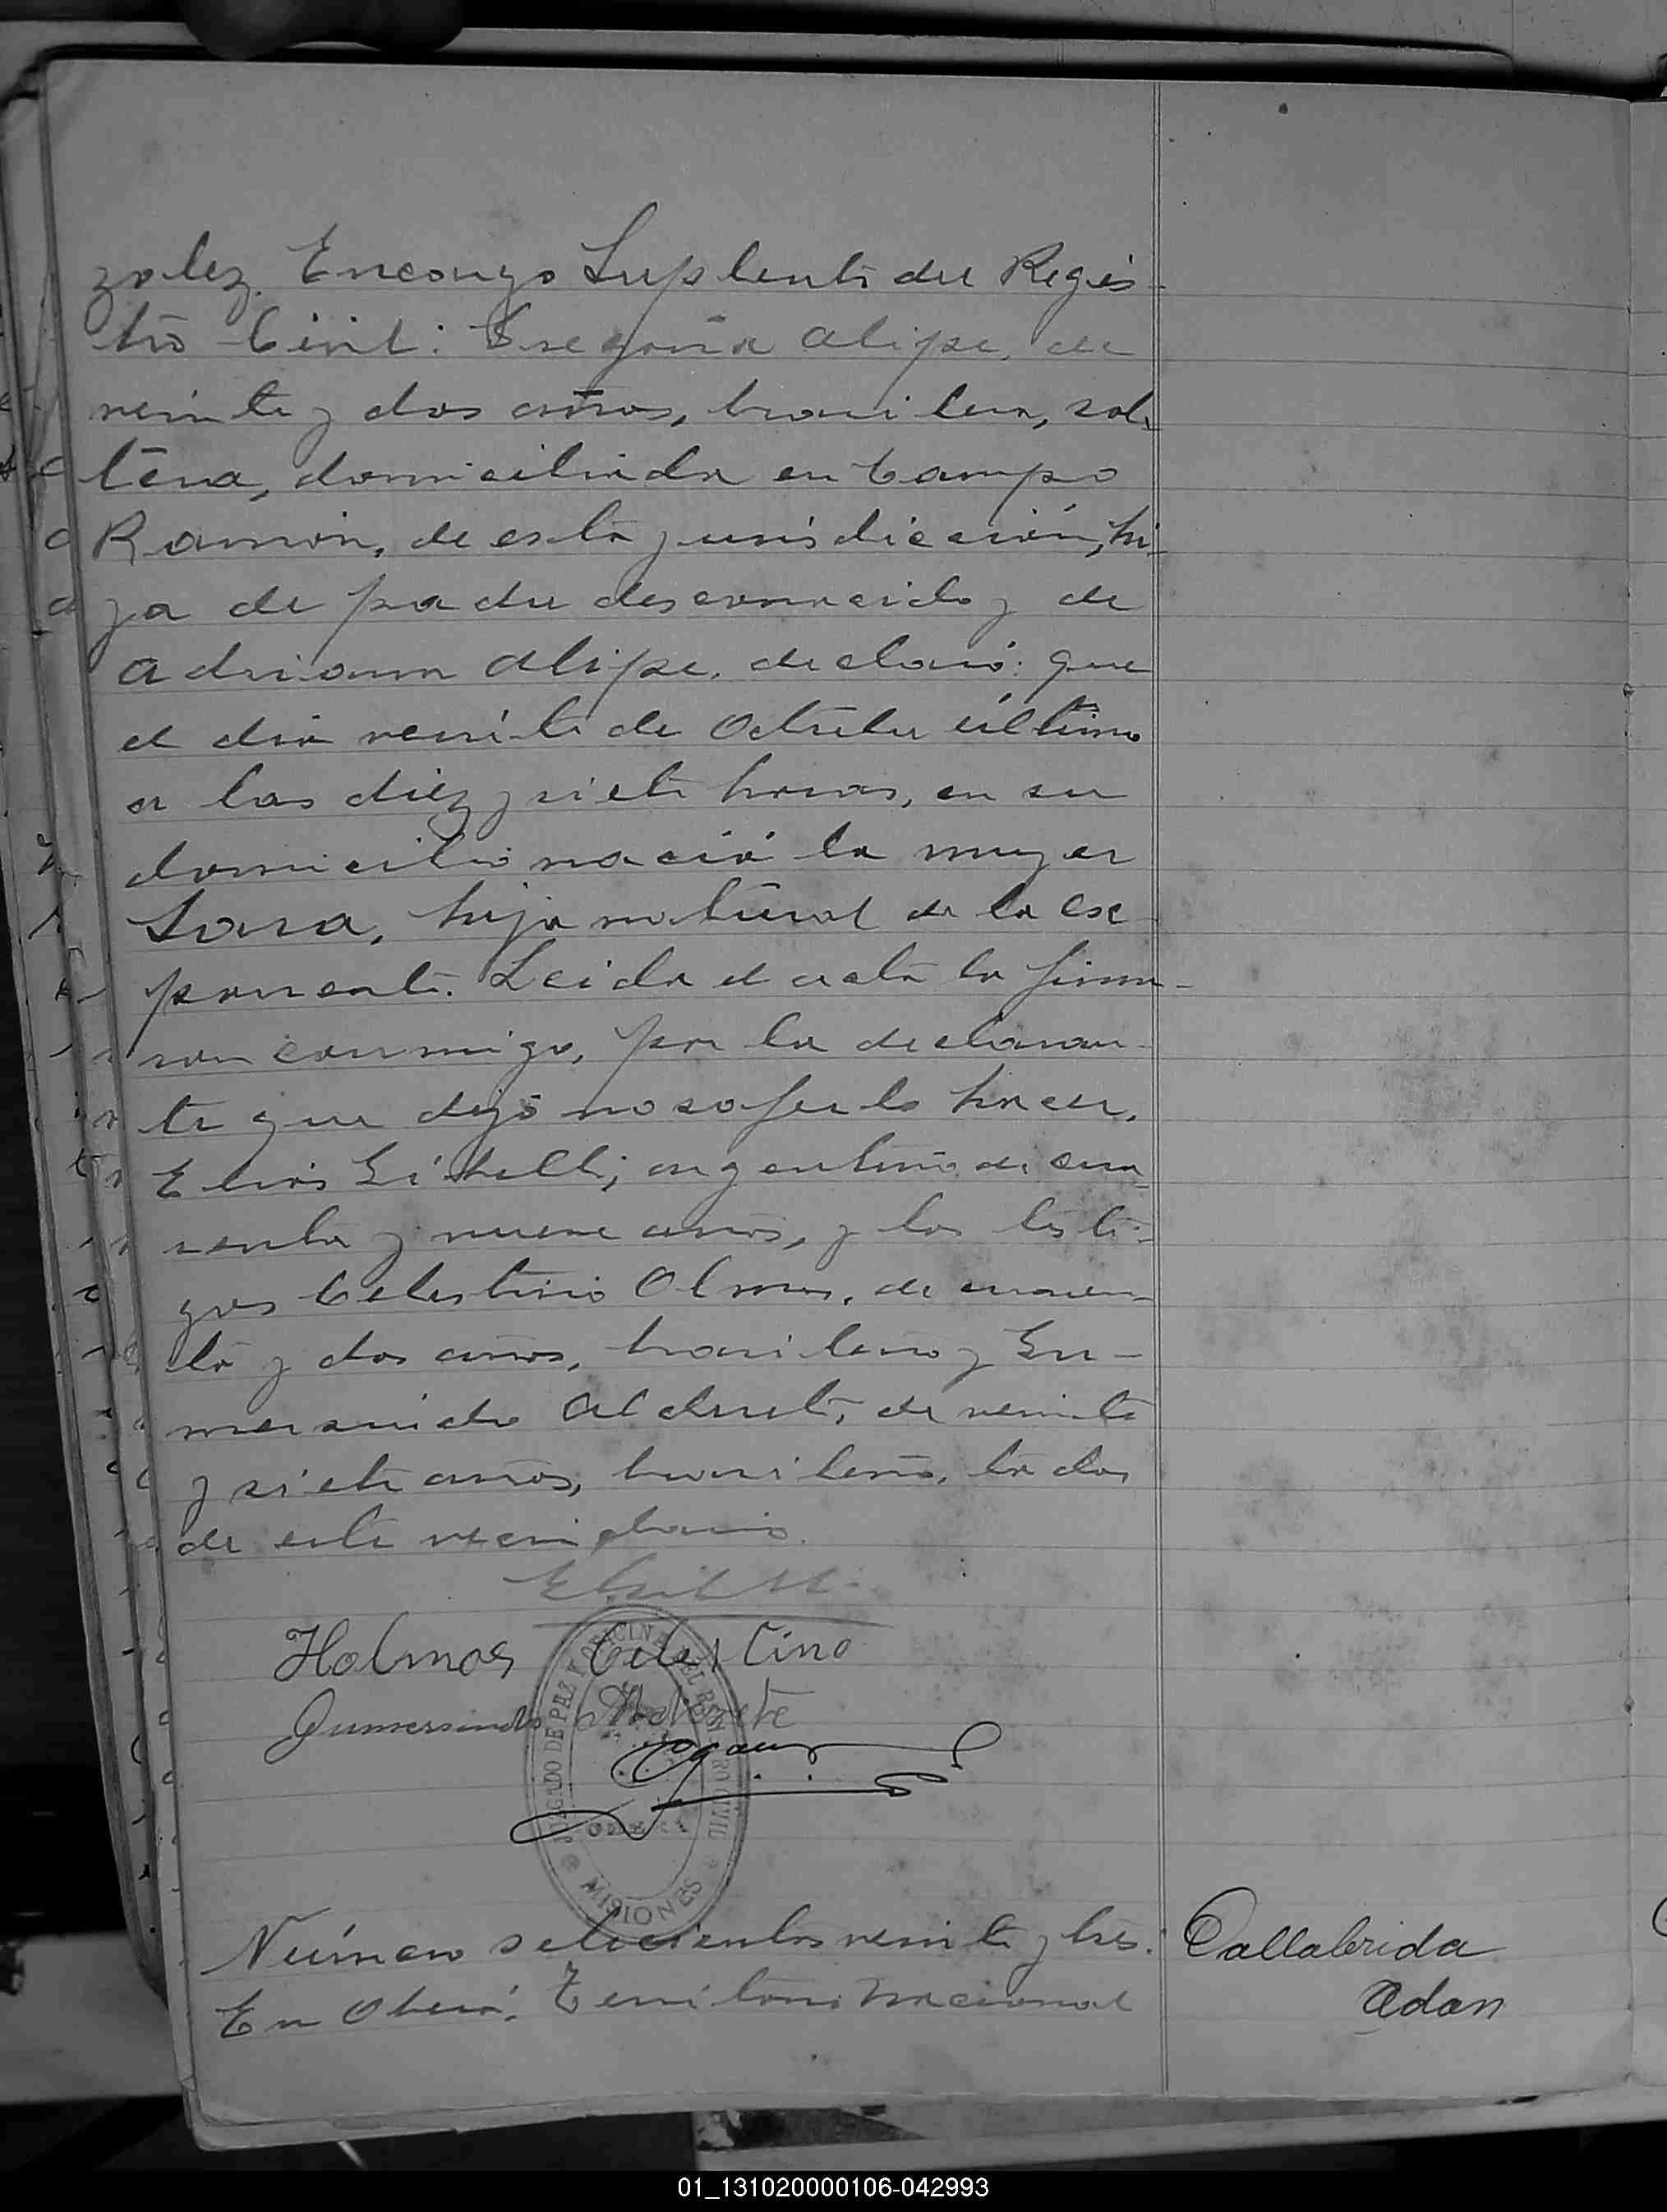 zalez. Encargo Suplente del Regis-
tro Civil: Gregoria Alipe, de
veinte y dos años, brasilera, sol-
tera, domiciliada en Campo
Ramón, de esta jurisdicción, hi-
ja de padre desconocido y de
Adriana Alipe, declaró: que
el dia veinte de Octubre último
a las diez y siete horas, en su
domicilio nació la mujer
Sara, hija natural de la ex-
ponente. Leida el acta la firma-
ron conmigo, por la declaran-
te que dijo no saber lo hacer,
Elias argentino de cua-
renta y nueve años, y los testi-
gos Celestino Olmos, de cuaren-
ta y dos años, brasilero y Gu-
mersindo Alderete, de veinte
y siete años, brasilero, todos
de este vecindario.
Holmos Celestino
Gumersindo Alderete
JUZGADO DE PAZ Y OFICINA DEL REGISTRO CIVIL
OBERA
MISIONES
Número setecientos veinte y tres.
En Oberá, Territorio Nacional
Dallabrida
Adan
01_131020000106-042993